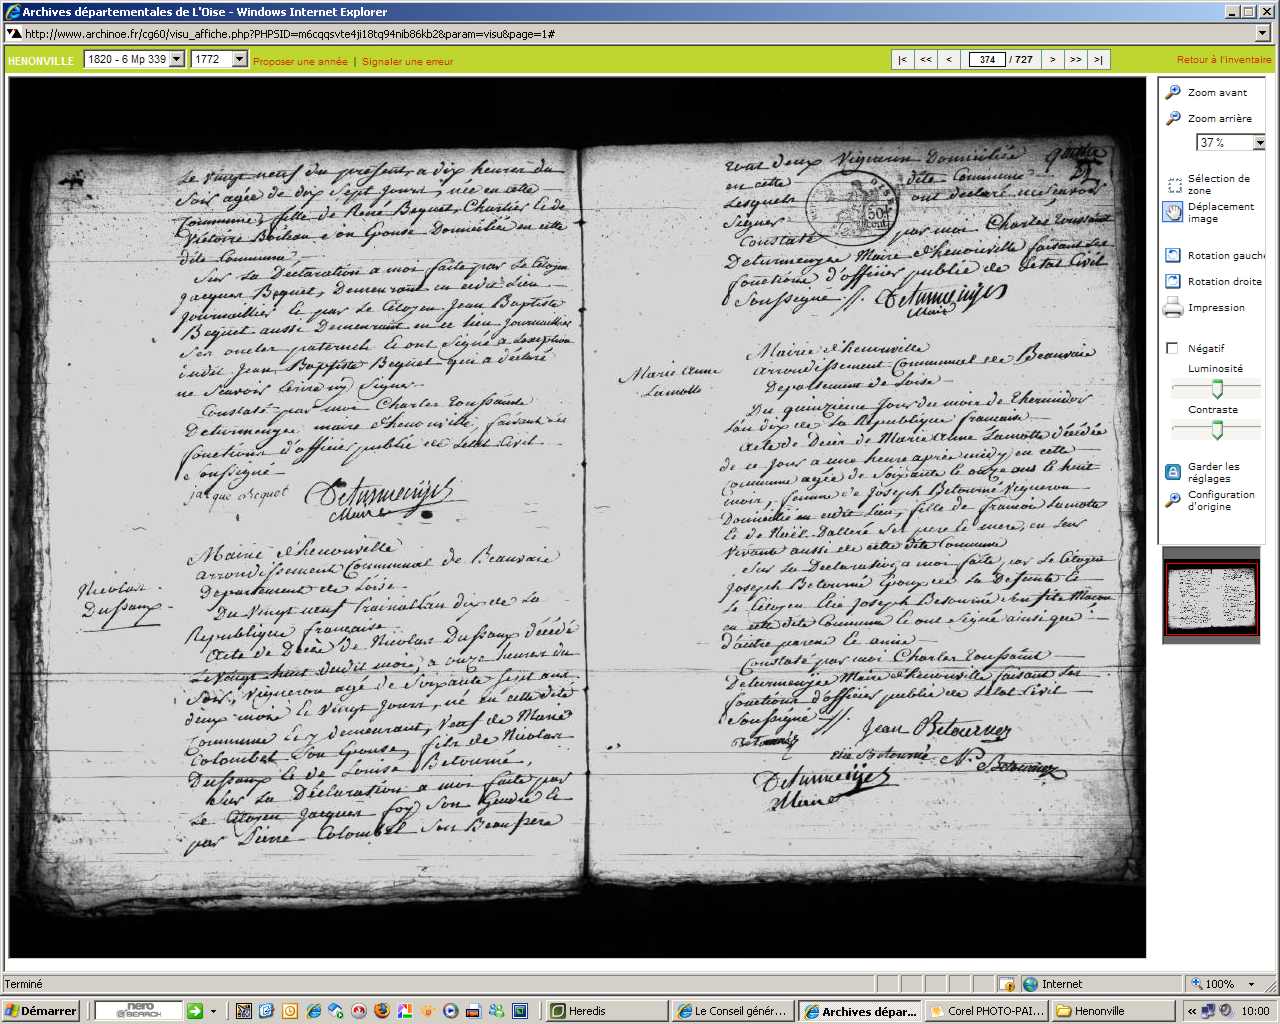 Archives départementales de L'Oise - Windows Internet Explorer
http://www.archinoe.fr/cg60/visu_affiche.php?PHPSID=m6cqqsvte4ji18tq94nib86kb2&param=visu&page=1#
HENONVILLE 1820 - 6 Mp 339 1772 Proposer une année | Signaler une erreur |< << < 374 / 727 > >> >| Retour à l'inventaire
Le vingt neuf du présent, a dix heures du
Soir agée de dix Sept Jours née en cette
Commune, fille de René Bequet, Charlier & de
Victoire Boileau Son Epouse Domiciliée en cette
dite Commune
Sur La Déclaration a moi faite par Le Citoyen
Jacques Bequet, Demeurant en ce dit Lieu
Journaillier & par Le Citoyen Jean Baptiste
Bequet aussi Demeurant en ce Lieu Journaillier
Ses oncles paternels & ont Signé a Lexeption
dudit Jean Baptiste Bequet qui a déclaré
ne Scavoir Ecrire ny Signer
Constaté par moi Charles Toussaint
Deturmenyes maire d'henonville, faisant les
fonctions d'officier public de Letat Civil
Soussigné
jacque Bequet Deturmenyes
Maire
Nicolas
Dussaux
Mairie d'henonville
arrondissement Communal de Beauvais
Departement de Loise
Du Vingt neuf Prairial L'an dix de La
Republique française
Acte de Décès de Nicolas Dussaux décédé
Le vingt huit dudit mois, a onze heures du
Soir, Vigneron agé de Soixante Sept ans
deux mois & Vingt Jours, né en cette dite
Commune & y demeurant, Veuf de Marie
Colombel Son Epouse, fils de Nicolas
Dussaux & de Louise Betourné,
Sur La Déclaration a moi faite par
Le Citoyen Jacques Foy Son Gendre &
par Pierre Colombel Son Beau frere
tous deux Vigneron Domiciliée
en cette dite Commune
Lesquels ont déclaré ne Scavoir
Signer
Constaté par moi Charles Toussaint
Deturmenyes Maire d'henonville faisant les
fonctions d'officier public de Letat Civil
Soussigné Deturmenyes
Maire
Marie Anne
Lamotte
Mairie d'henonville
arrondissement Communal de Beauvais
Departement de Loise
Du quinzieme Jour du mois de Thermidor
L'an dix de La Republique française
Acte de Décès de Marie Anne Lamotte décédée
de ce Jour a une heure après midy en cette
Commune agée de Soixante & onze ans & huit
mois, femme de Joseph Betourné Vigneron
Domicilié en ce dit Lieu, fille de francois Lamotte
& de Ses pere & mere, en Leur
Vivant aussi de cette dite Commune
Sur La Declaration a moi faite par Le Citoyen
Joseph Betourné Epoux de La Defunte &
Le Citoyen Elie Joseph Betourné Son fils Macon
en cette dite Commune & ont Signé ainsi que
d'autre parens & amis
Constaté par moi Charles Toussaint
Deturmenyes Maire d'henonville faisant les
fonctions d'officier public de Letat Civil
Soussigné Jean Betourner
Betourné elie Betourné N. Betourné
Deturmenyes
Maire
Zoom avant
Zoom arrière
37 %
Sélection de
zone
Déplacement
image
Rotation gauche
Rotation droite
Impression
Négatif
Luminosité
Contraste
Garder les
réglages
Configuration
d'origine
Terminé Internet 100%
Démarrer nero SEARCH Heredis Le Conseil génér... Archives dépar... Corel PHOTO-PAI... Henonville 10:00